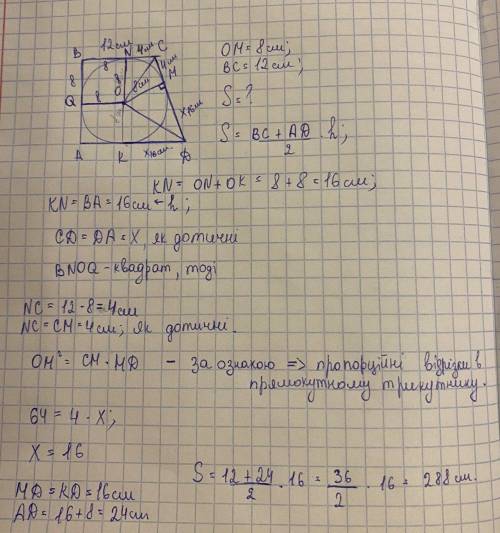 12см
B 8 N 4см C
8 8 4см
O 8см M
Q 8
X 16см
A K X 16см D
OM = 8см;
BC = 12см;
S = ?
S = BC + AD / 2 · h;
KN = ON + OK = 8 + 8 = 16см;
KN = BA = 16см ← h;
CD = DA = X, як дотичні
BNOQ - квадрат, тоді
NC = 12 - 8 = 4см
NC = CM = 4см; як дотичні.
OM² = CM · MD - за ознакою => пропорційні відрізки в
прямокутному трикутнику.
64 = 4 · X;
X = 16
S = 12 + 24 / 2 · 16 = 36 / 2 · 16 = 288 см.
MD = KD = 16см
AD = 16 + 8 = 24см